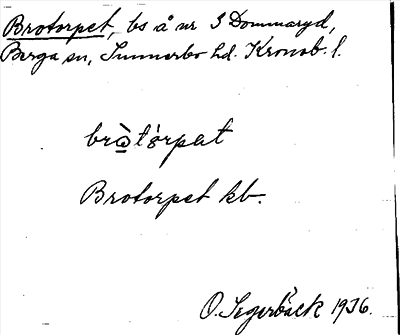 Brotorpet, bs å nr 3 Dommaryd,
Berga sn, Sunnerbo hd. Kronob. l.
bròtórpat
Brotorpet kb.
O. Segerbäck 1936.